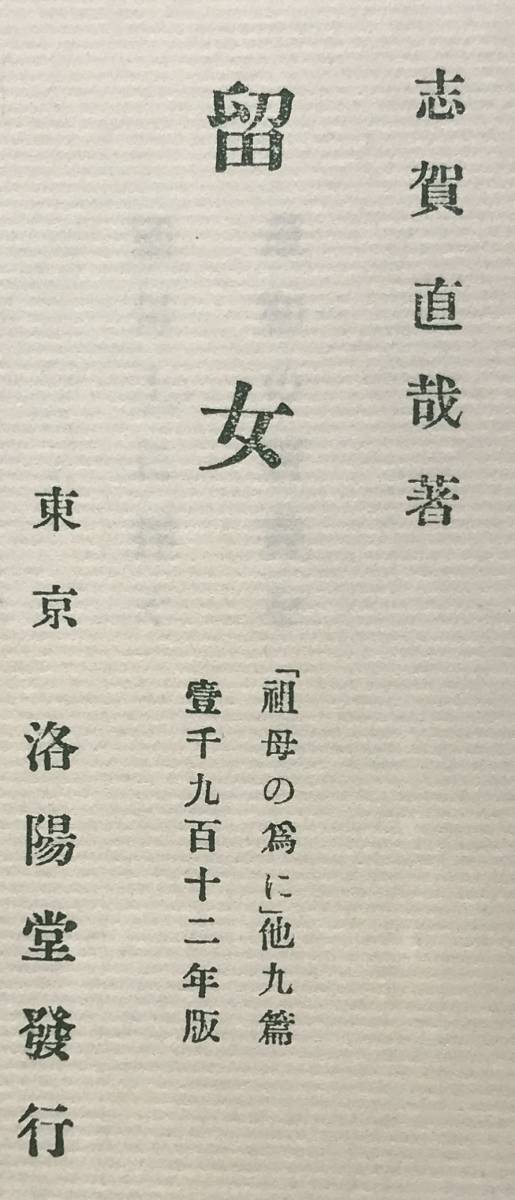 志賀直哉著
留女
「祖母の爲に」他九篇
壹千九百十二年版
東京 洛陽堂發行